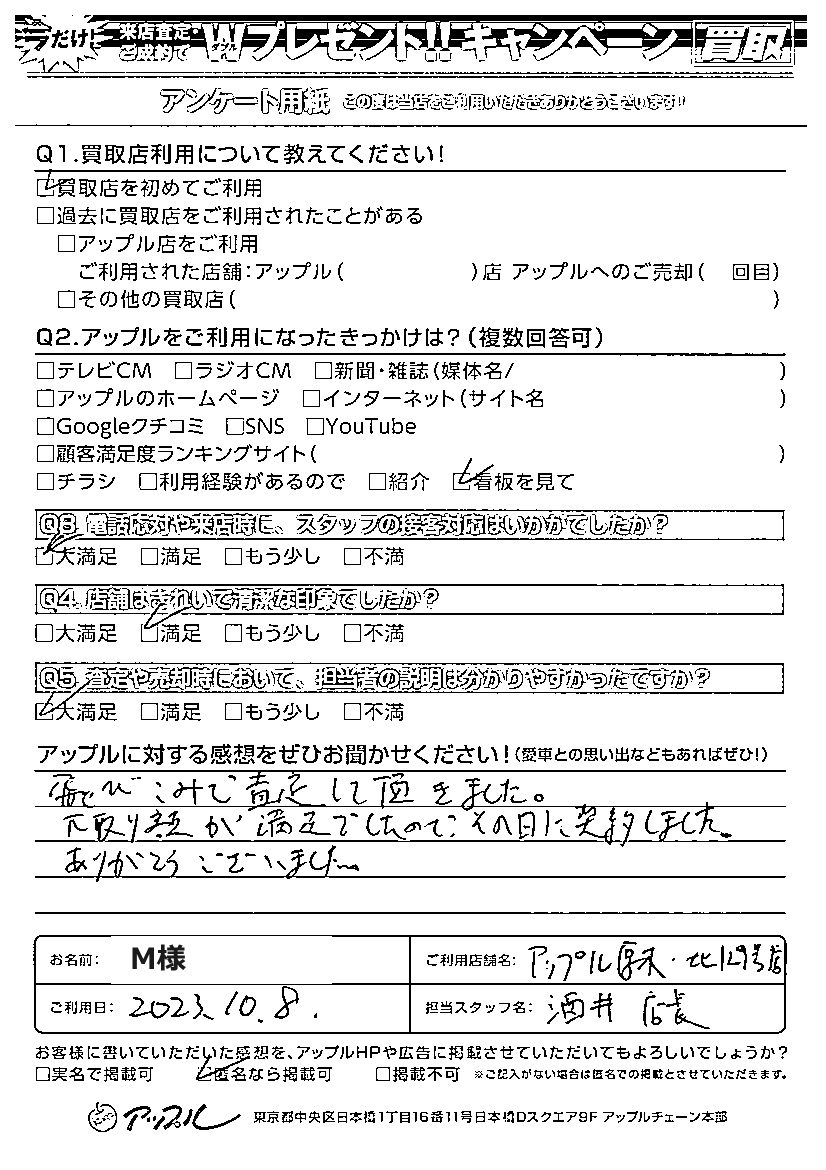 だけ! 来店査定・ご成約で Wプレゼント!! キャンペーン 買取
アンケート用紙 この度は当店をご利用いただきありがとうございます!!
Q1.買取店利用について教えてください!
☑買取店を初めてご利用
□過去に買取店をご利用されたことがある
□アップル店をご利用
ご利用された店舗:アップル( )店 アップルへのご売却( 回目)
□その他の買取店( )
Q2.アップルをご利用になったきっかけは?(複数回答可)
□テレビCM □ラジオCM □新聞・雑誌(媒体名/ )
□アップルのホームページ □インターネット(サイト名 )
□Googleクチコミ □SNS □YouTube
□顧客満足度ランキングサイト( )
□チラシ □利用経験があるので □紹介 ☑看板を見て
Q3. 電話応対や来店時に、スタッフの接客対応はいかがでしたか?
☑大満足 □満足 □もう少し □不満
Q4. 店舗はきれいで清潔な印象でしたか?
□大満足 ☑満足 □もう少し □不満
Q5. 査定や売却時において、担当者の説明は分かりやすかったですか?
☑大満足 □満足 □もう少し □不満
アップルに対する感想をぜひお聞かせください!(愛車との思い出などもあればぜひ!)
飛びこみで査定して頂きました。
下取り額が満足でしたので、その日に契約しました。
ありがとうございました。
お名前: M様 ご利用店舗名: アップル厚木・北129号店
ご利用日: 2023.10.8. 担当スタッフ名: 酒井 店長
お客様に書いていただいた感想を、アップルHPや広告に掲載させていただいてもよろしいでしょうか?
□実名で掲載可 ☑匿名なら掲載可 □掲載不可 ※ご記入がない場合は匿名での掲載とさせていただきます。
アップル 東京都中央区日本橋1丁目16番11号日本橋Dスクエア9F アップルチェーン本部